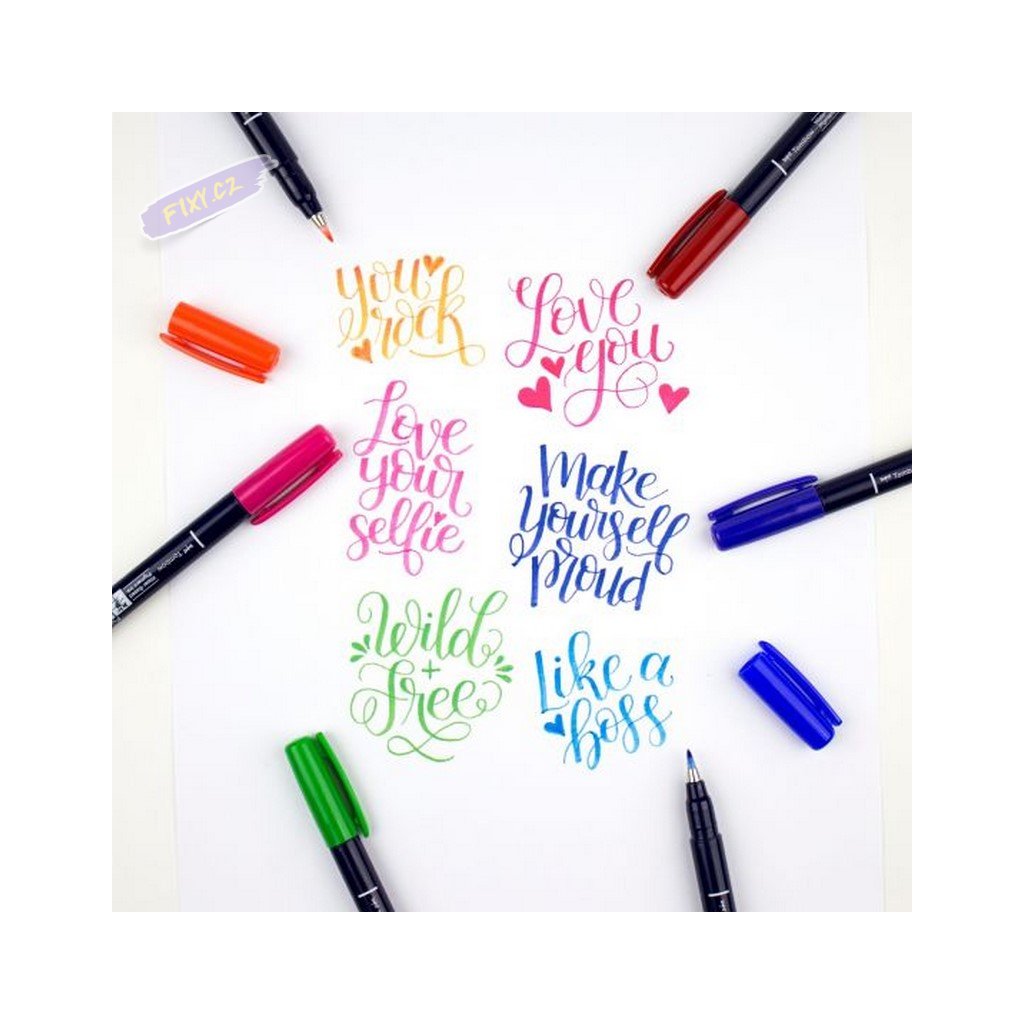 FIXY.CZ
You
rock
Love
you
Love
your
selfie
Make
yourself
proud
Wild
+
free
Like a
boss
Tombow
Tombow
Tombow